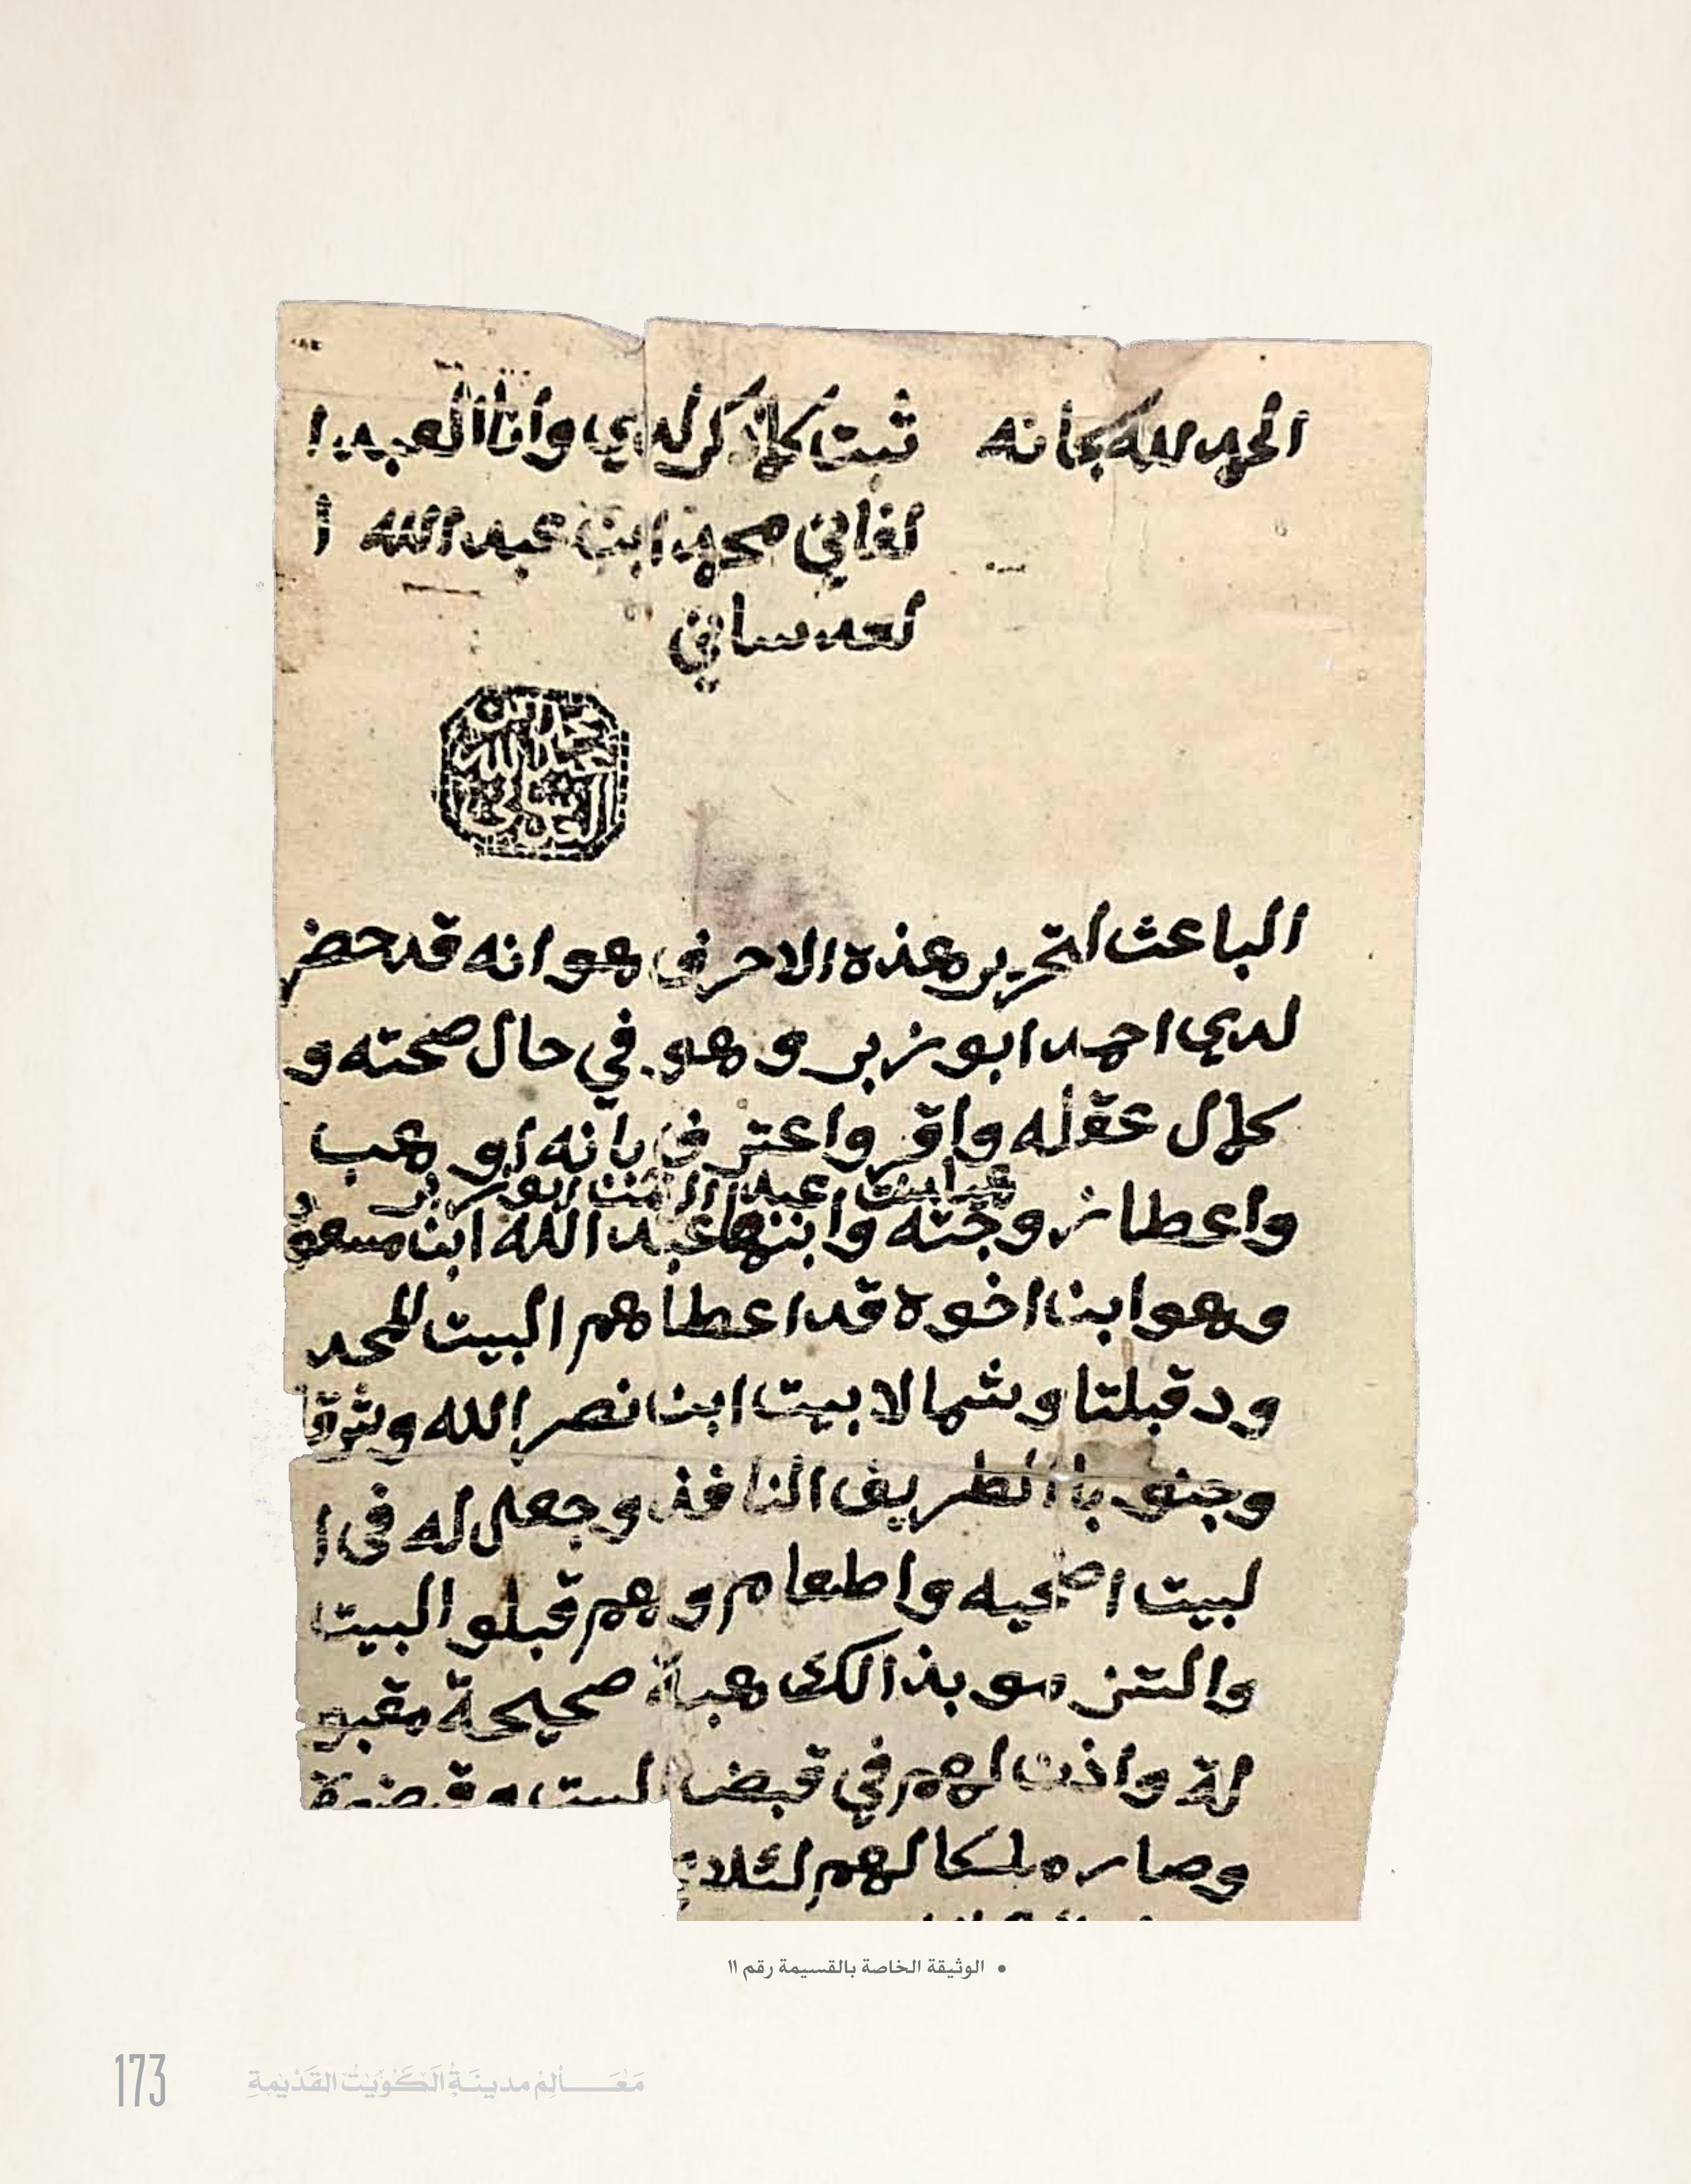 الحمد لله سبحانه
ثبت كلما ذكر لدي وانا العبد ا
لفاني محمد ابن عبد الله ا
لعدساني
محمد ابن
عبد الله
العدساني
الباعث لتحرير هذه الاحرف هو انه قد حضر
لدي احمد ابو زبر وهو في حال صحته و
كمال عقله واقر واعترف بانه او هب
واعطا زوجته وابنتها عبد الله ابن مسعود
وهو ابن اخوه قد اعطاهم البيت المحد
ود قبلتا وشمالا بيت ابن نصر الله وشرقا
وجنوبا الطريق النافذ وجعل له في ا
لبيت اضحيه واطعام وهم قبلو البيت
والتزمو بذالك هبة صحيحة مقبو
لة واذن لهم في قبض البيت وقبضوه
وصاره ملكا لهم
• الوثيقة الخاصة بالقسيمة رقم ١١
173
مَعَالِمُ مدينَةُ الكُوَيْتُ القَدْيمةِ